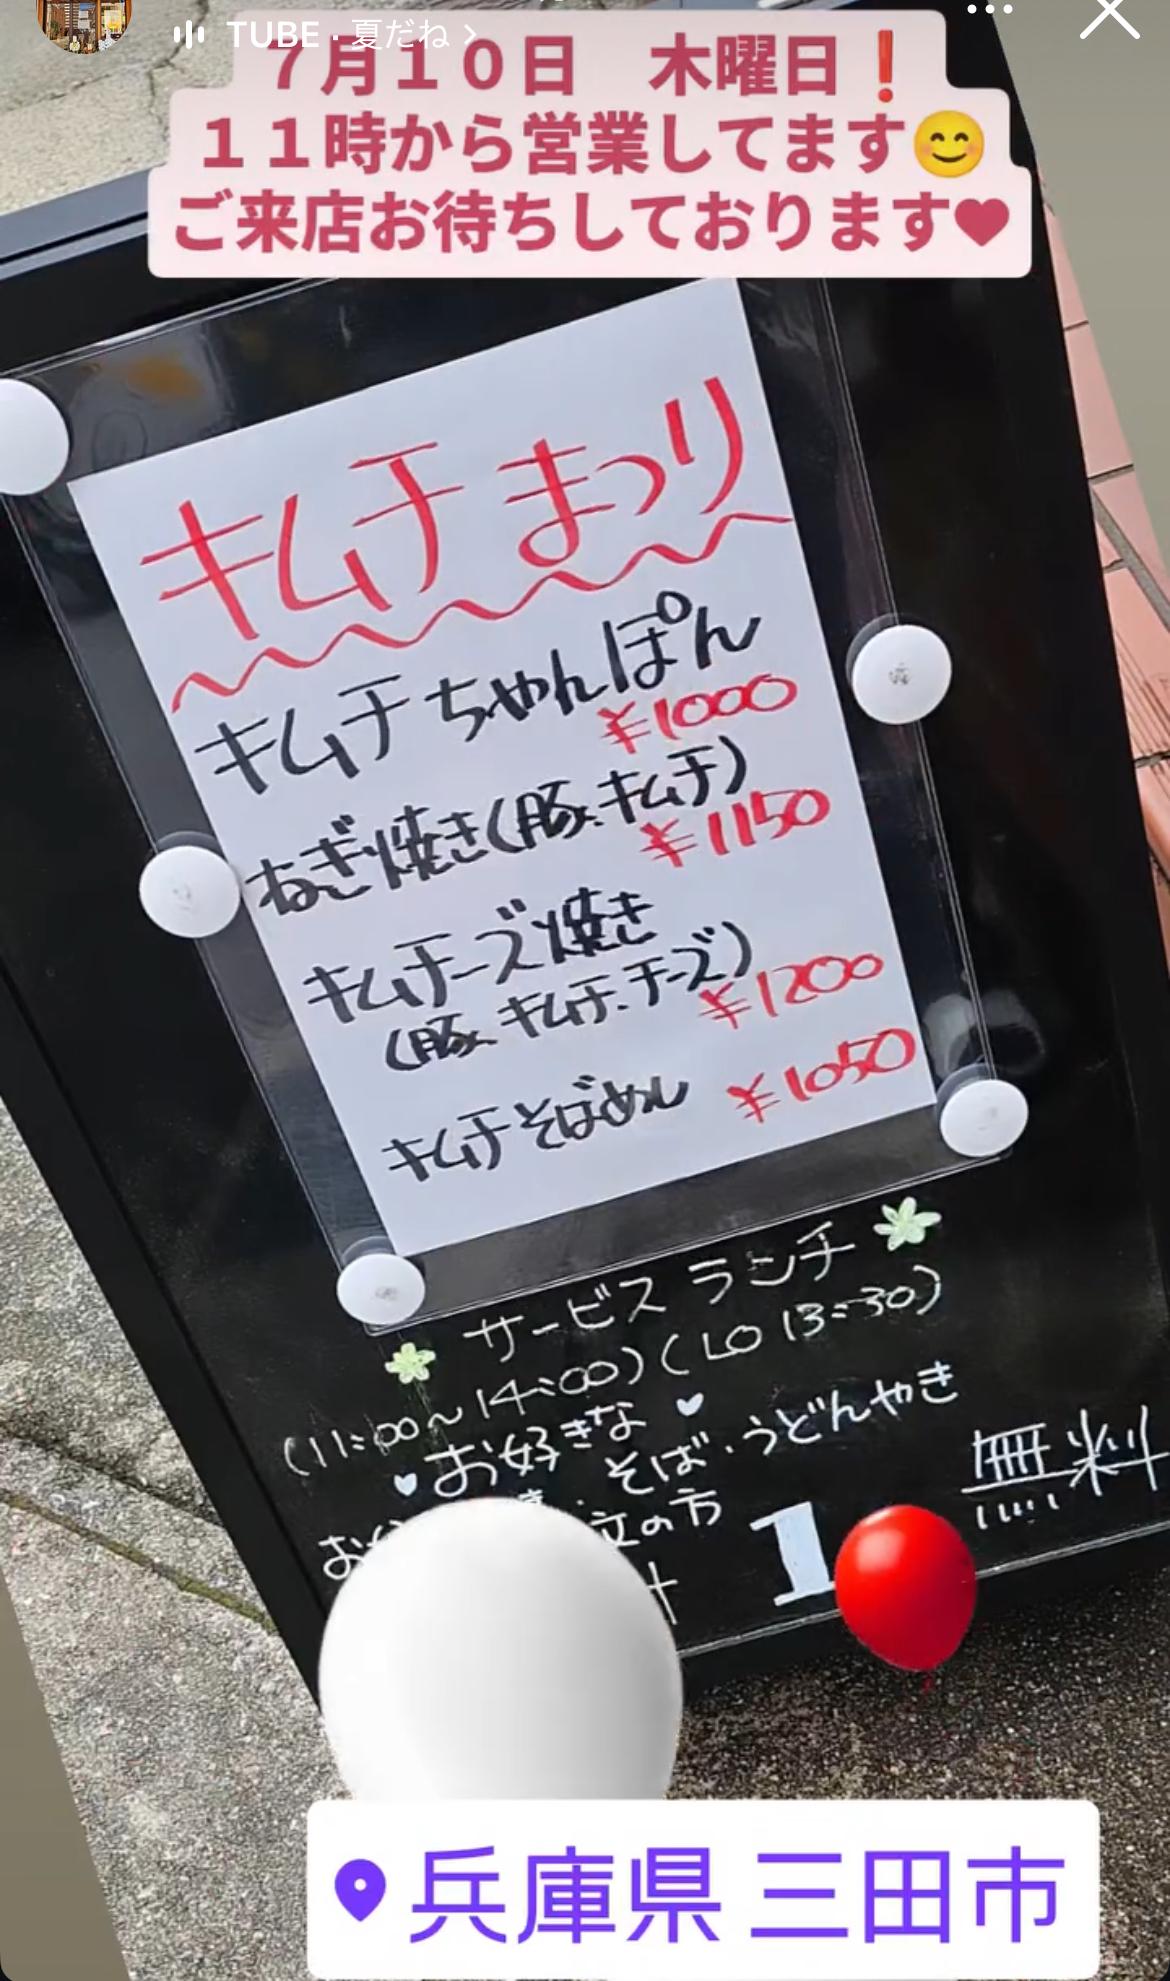 TUBE・夏だね >
7月10日 木曜日❗
11時から営業してます😊
ご来店お待ちしております♥
キムチまつり
キムチちゃんぽん
¥1000
ねぎ焼き(豚、キムチ)
¥1150
キムチーズ焼き
(豚、キムチ、チーズ)
¥1200
キムチそばめし ¥1050
サービスランチ
(11:00~14:00)(LO 13:30)
お好きな
そば・うどんやき
文の方
1
無料
兵庫県 三田市